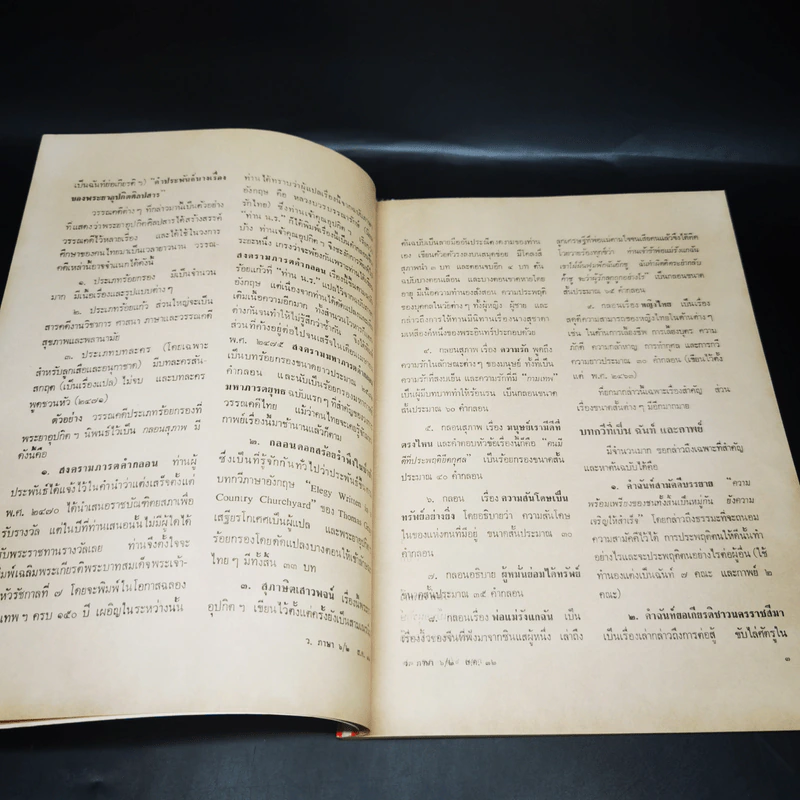 เป็นฉันท์ย่อเกียรติ ฯ) "คำประพันธ์บางเรื่อง
ของพระยาอุปกิตศิลปสาร"
วรรณคดีต่าง ๆ ที่กล่าวมานี้เป็นตัวอย่าง
ที่แสดงว่าพระยาอุปกิตศิลปสารได้สร้างสรรค์
วรรณคดีไว้หลายเรื่อง และได้ใช้ในวงการ
ศึกษาของกุลไทยมาเป็นเวลายาวนาน วรรณ-
คดีเหล่านี้อาจจำแนกได้ดังนี้
๑. ประเภทร้อยกรอง มีเป็นจำนวน
มาก มีเนื้อเรื่องและรูปแบบต่าง ๆ
๒. ประเภทร้อยแก้ว ส่วนใหญ่จะเป็น
สารคดีงานวิชาการ ศาสนา ภาษาและวรรณคดี
สุขภาพและพลานามัย
๓. ประเภทบทละคร (โดยเฉพาะ
สำหรับลูกเสือและอนุกาชาด) มีบทละครสัน-
สกฤต (เป็นเรื่องแปล) ไม่จบ และบทละคร
พูดชวนหัว (๒๔๗๑)
ตัวอย่าง วรรณคดีประเภทร้อยกรองที่
พระยาอุปกิต ฯ นิพนธ์ไว้เป็น กลอนสุภาพ มี
ดังนี้คือ
๑. สงครามภารตคำกลอน ท่านผู้
ประพันธ์ได้แจ้งไว้ในคำนำว่าแต่งเสร็จตั้งแต่
๒๔๗๐ ได้นำเสนอราชบัณฑิตยสภาเพื่อ
รับรางวัล แต่ในปีที่ท่านเสนอนั้นไม่มีผู้ใดได้
รับพระราชทานรางวัลเลย ท่านจึงตั้งใจจะ
พิมพ์เฉลิมพระเกียรติพระบาทสมเด็จพระเจ้า-
หัวรัชกาลที่ ๗ โดยจะพิมพ์ในโอกาสฉลอง
เทพ ฯ ครบ ๑๕๐ ปี เผอิญในระหว่างนั้น
ท่านได้ทราบว่าผู้แปลเรื่องนี้จากภาษา
อังกฤษ คือ หลวงบวรบรรณารักษ์
รักไทย) ซึ่งท่านเจ้าคุณอุปกิต ฯ
"ท่าน น.ร." ก็ได้พิมพ์เรื่องนี้เป็น
บ้าง ท่านเจ้าคุณอุปกิต ฯ จึงชะลอการ
ระยะหนึ่ง เกรงว่าจะพ้องกัน
สงครามภารตคำกลอน เรื่องนี้
ร้อยแก้วที่ "ท่าน น.ร." แปลไว้จาก
อังกฤษ แต่เนื่องจากท่านได้
เติมเนื้อความอีกมาก ทั้งสำนวน
ต่างกันจนทำให้ไม่รู้สึกว่าซ้ำกัน
ส่วนที่ค้างอยู่ต่อไปจนเสร็จใน
พ.ศ. ๒๔๗๕ สงครามมหาภารตคำ
เป็นบทร้อยกรองขนาดยาวประมาณ
คำกลอน และนับเป็นร้อยกรอง
มหาภารตยุทธ ฉบับแรก ๆ ที่สำคัญของ
วรรณคดีไทย แม้ว่าคนไทยจะเคยรู้
กาพย์เรื่องนี้มาช้านานแล้วก็ตาม
๒. กลอนดอกสร้อยรำพึงในป่าช้า
ซึ่งเป็นที่รู้จักกันทั่วไปว่าประพันธ์
บทกวีภาษาอังกฤษ "Elegy Written in
Country Churchyard" ของ Thomas
เสฐียรโกเศศเป็นผู้แปล และพระยาอุปกิต
ร้อยกรองโดยดัดแปลงบางตอนให้เข้ากับ
ไทย ๆ มีทั้งสิ้น ๓๓ บท
๓. สุภาษิตเสาวพจน์ เรื่องนี้
อุปกิต ฯ เขียนไว้ตั้งแต่ครั้งยังเป็นสามเณร
ว. ภาษา ๖/๒ ส.ค.
ต้นฉบับเป็นลายมืออันประณีตงดงามของท่าน
เอง เขียนด้วยตัวรงลงบนสมุดข่อย มีโคลงสี่
สุภาพนำ ๑ บท และตอนจบอีก ๔ บท ต้น
ฉบับบางตอนเลือน และบางตอนขาดหายโดย
อายุ มีเนื้อความทำนองสั่งสอน ความประพฤติ
ของบุคคลในวัยต่าง ๆ ทั้งผู้หญิง ผู้ชาย และ
กล่าวถึงการให้มีนิทานเรื่องนางสุชาดา
มเหสีองค์หนึ่งของพระอินทร์ประกอบด้วย
๔. กลอนสุภาพ เรื่อง ความรัก พูดถึง
ความรักในลักษณะต่าง ๆ ของมนุษย์ ทั้งที่เป็น
ความรักที่สงบเย็น และความรักที่มี "กามเทพ"
เป็นผู้มีบทบาททำให้ร้อนรน เป็นกลอนขนาด
สั้นประมาณ ๖๐ คำกลอน
๕. กลอนสุภาพ เรื่อง มนุษย์เรามีดีที่
ตรงไหน และคำตอบหัวข้อเรื่องนี้ก็คือ "คนมี
ดีที่ประพฤติยึดกุศล" เป็นร้อยกรองขนาดสั้น
ประมาณ ๔๐ คำกลอน
๖. กลอน เรื่อง ความสันโดษเป็น
ทรัพย์อย่างยิ่ง โดยอธิบายว่า ความสันโดษ
ในของแห่งตนที่มีอยู่ ขนาดสั้นประมาณ ๓๐
คำกลอน
๗. กลอนอธิบาย ผู้หมั่นย่อมได้ทรัพย์
ขนาดสั้นประมาณ ๓๕ คำกลอน
๘. กลอนเรื่อง พ่อแม่รังแกฉัน เป็น
เรื่องงิ้วของจีนที่ฟังมาจากซินแสผู้หนึ่ง เล่าถึง
ว. ภาษา ๖/๒ ส.ค. ๑๖
ลูกเศรษฐีที่พ่อแม่ตามใจจนเสียคนแล้วจึงได้คิด
เป็นกลอนขนาด
สั้นประมาณ ๔๕ คำกลอน
๙. กลอนเรื่อง หญิงไทย เป็นเรื่อง
สดุดีความสามารถของหญิงไทยในด้านต่าง ๆ
เช่น ในด้านการเลี้ยงชีพ การเลี้ยงบุตร ความ
ภักดี ความกล้าหาญ การทำกุศล และการกวี
ความยาวประมาณ ๓๐ คำกลอน (เขียนไว้ตั้ง
แต่ พ.ศ. ๒๔๖๓)
ที่ยกมากล่าวนี้เฉพาะเรื่องสำคัญ ส่วน
เรื่องขนาดสั้นต่าง ๆ มีอีกมากมาย
บทกวีที่เป็น ฉันท์ และกาพย์
มีจำนวนมาก ขอกล่าวถึงเฉพาะที่สำคัญ
และหาต้นฉบับได้คือ
๑. คำฉันท์สามัคคีบรรยาย "ความ
พร้อมเพรียงของชนทั้งสิ้นเป็นหมู่กัน ยังความ
เจริญให้สำเร็จ" โดยกล่าวถึงธรรมะที่จะถนอม
ความสามัคคีไว้ได้ การประพฤติตนให้ดีนั้นทำ
อย่างไรและจะประพฤติตนอย่างไรต่อผู้อื่น (ใช้
ทำนองแต่งเป็นฉันท์ ๗ คณะ และกาพย์ ๒
คณะ)
๒. คำฉันท์สอเกียรติชาวนครราชสีมา
เป็นเรื่องเล่ากล่าวถึงการต่อสู้ ขับไล่ศัตรูใน
๓